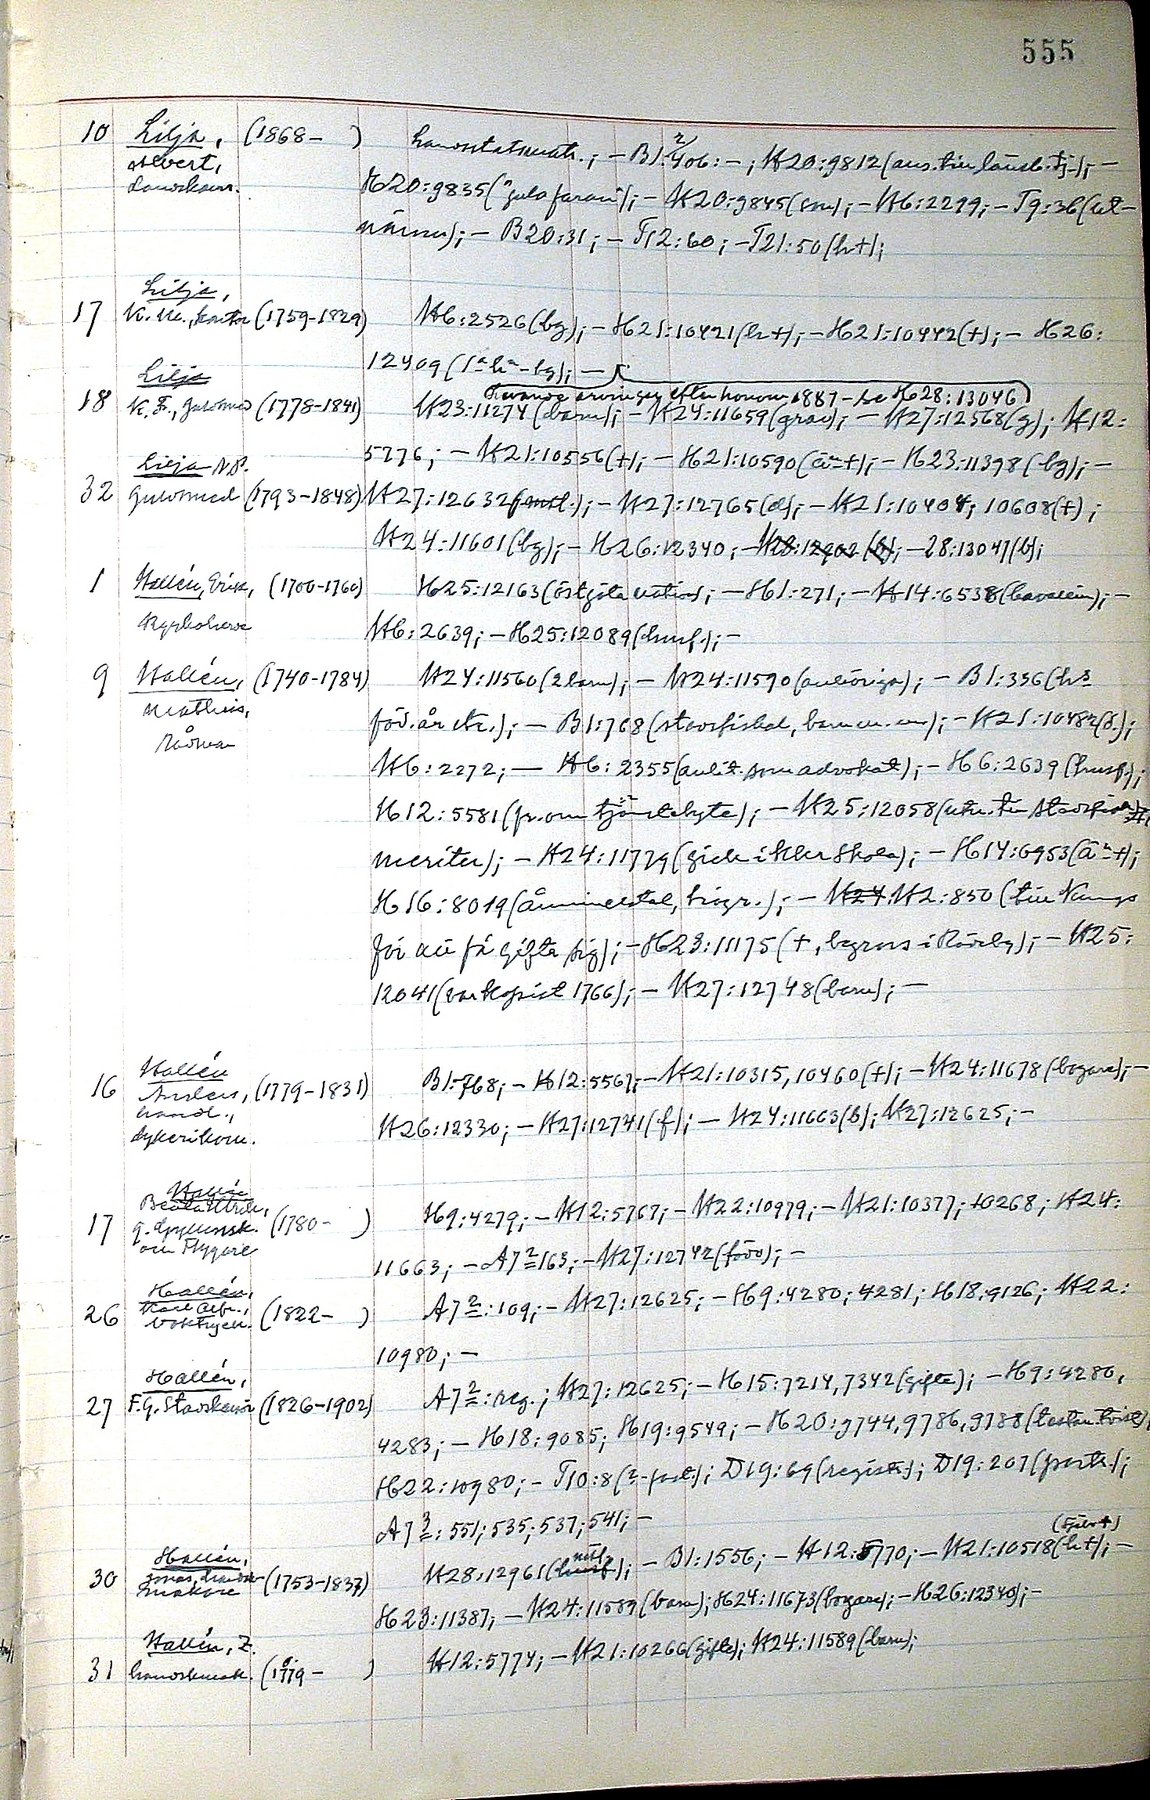 555
10 Lilja, (1868- ) Landstatmatr.; - B1:2/406:-; H20:9812 (ans. till länsb. tj-); -
Albert,
Landskam. H20:9835 ("gula faran"); - H20:9845 (son); - H6:2299; - T9:36 (ut-
nämn); - B20:31; - T12:60; - T21:50 (h+);
Lilja,
17 K. M., kantor (1759-1829) H6:2526 (bg); - H21:10421 (h+); - H21:10442 (+); - H26:
12409 (1ª h ª - bg); -
Lilja
18 K. F., Guldsmed (1778-1841) H23:11274 (barn); - H24:11659 (grav); - H27:12568 (g); H12:
(Levande arvingar efter honom 1887 - se H28:13046)
5776; - H21:10556 (+); - H21:10590 (ä=+); - H23:11398 (bg); -
Lilja N.P.
32 Guldsmed (1793-1848) H27:12632 ; - H27:12765 (d); - H21:10404; 10608 (+);
H24:11601 (bg); - H26:12340; - H28:12902 (b); - 28:13047 (b);
1 Hallén, Erik, (1700-1760) H25:12163 (östgöta nation); - H1:271; - H14:6538 ; -
Kyrkoherde H6:2639; - H25:12089 (husf.); -
9 Hallén, (1740-1784) H24:11560 (2 barn); - H24:11590 (anhöriga); - B1:336 (hs
Mathias,
Rådman föd. år etc.); - B1:768 (stadsfiskal, barn m. m.); - H21:10482 (d.);
H6:2272; - H6:2355 (anst. som advokat); - H6:2639 (husf.);
H12:5581 (fr. om tjänstebyte); - H25:12058 (utn. till Stadsfiskal,
meriter); - H24:11779 (gick i Klerskola); - H14:6953 (ä=+);
H16:8019 (åminnelsetal, biogr.); - H24: H2:850 (till Kungs
för att få gifta sig); - H23:11175 (+, begravs i Rödeby); - H25:
12041 (var kopist 1766); - H27:12748 (barn); -
16 Hallén (1779-1831) B1:768; - H12:5567; - H21:10315, 10460 (+); - H24:11678 (bogare); -
Anders,
handl.,
dykerikom. H26:12330; - H27:12741 (f); - H24:11663 (b); H27:12625; -
Hallén
Beata Ulrik,
17 g. dykerisk. (1780- ) H9:4279; - H12:5767; - H22:10979; - H21:10377; 10268; H24:
om Flygare 11663; - A7²:163; - H27:12742 (född); -
Hallén,
Karl Albr.,
26 boktryck. (1822- ) A7²:109; - H27:12625; - H9:4280; 4281; H18:9126; H22:
10980; -
Hallén,
27 F. G. Stadskassör (1826-1902) A7²:reg.; H27:12625; - H15:7214, 7342 (gifte); - H9:4280,
4283; - H18:9085; H19:9549; - H20:9744, 9786, 9788 (testam. tvist);
H22:10980; - T10:8 ; D19:69 (registr.); D19:207 (portr.);
A7³:551; 535; 537; 541; -
Hallén,
30 Jonas, Handsk- (1753-1837) H28:12961 ; - B1:1556; - H12:5770; - H21:10518 (h+); -
makare H23:11387; - H24:11589 (barn); H24:11673 (bogare); - H26:12340; -
Hallén, Z.
31 handskmak. (1779- ) H12:5774; - H21:10266 (gifte); H24:11589 (barn);